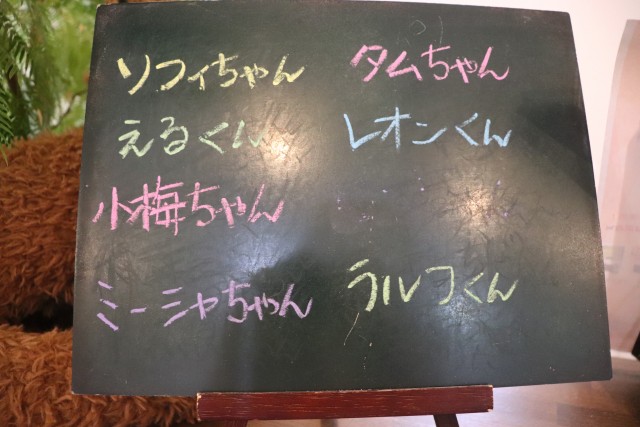 ソフィちゃん
えるくん
小梅ちゃん
ミーシャちゃん
タムちゃん
レオンくん
ラルフくん